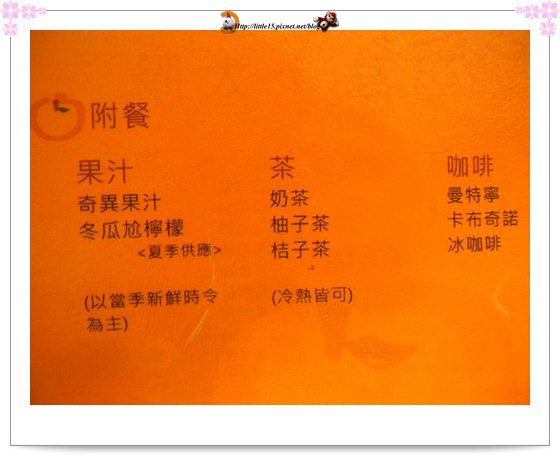 Http://little15.pixnet.net/blog
附餐
果汁
奇異果汁
冬瓜尬檸檬
<夏季供應>
(以當季新鮮時令
為主)
茶
奶茶
柚子茶
桔子茶
(冷熱皆可)
咖啡
曼特寧
卡布奇諾
冰咖啡